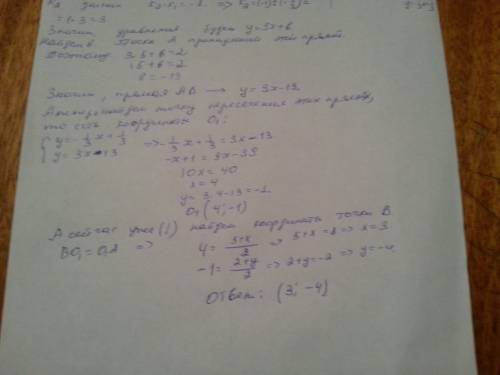 значит k₂·k₁ = -1 => k₂ = (-1):(-1/3) =
= 1·3 = 3
Значит, уравнение будет y=3x+b
Найдём b. Точка A принадлежит этой прямой.
Поэтому 3·5+b=2
15+b=2
b=-13
Значит, прямая AB → y=3x-13
найдём точку пересечения этих прямых,
то есть координаты O₁:
{ y=-1/3x+1/3 => -1/3x+1/3=3x-13
{ y=3x-13 -x+1=9x-39
10x=40
x=4
y=3·4-13=-1
O₁(4;-1)
А сейчас уже (!) найдём координаты точки B
BO₁=O₁A => 4=(5+x)/2 => 5+x=8 => x=3
-1=(2+y)/2 => 2+y=-2 => y=-4
Ответ: (3; -4)